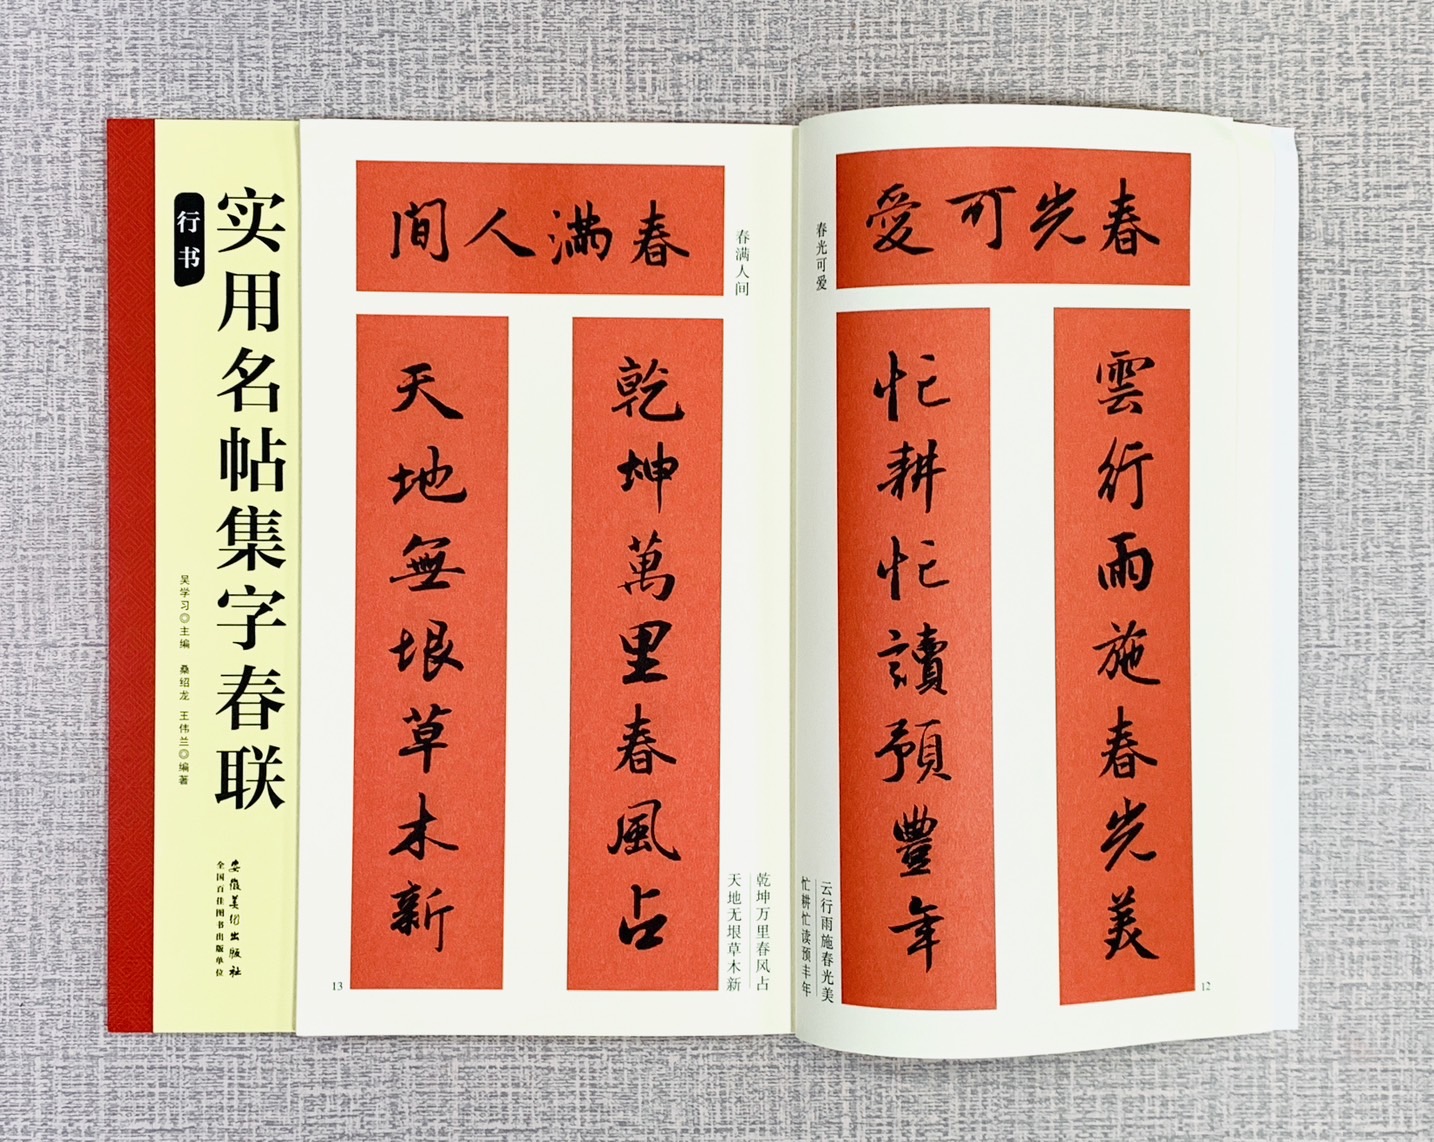 实用名帖集字春联
行书
吴学习◎主编 桑绍龙 王伟兰◎编著
安徽美术出版社
全国百佳图书出版单位
春光可愛
雲行雨施春光美
忙耕忙讀預豐年
春光可爱
云行雨施春光美
忙耕忙读预丰年
12
春满人間
乾坤萬里春風占
天地無垠草木新
春满人间
乾坤万里春风占
天地无垠草木新
13